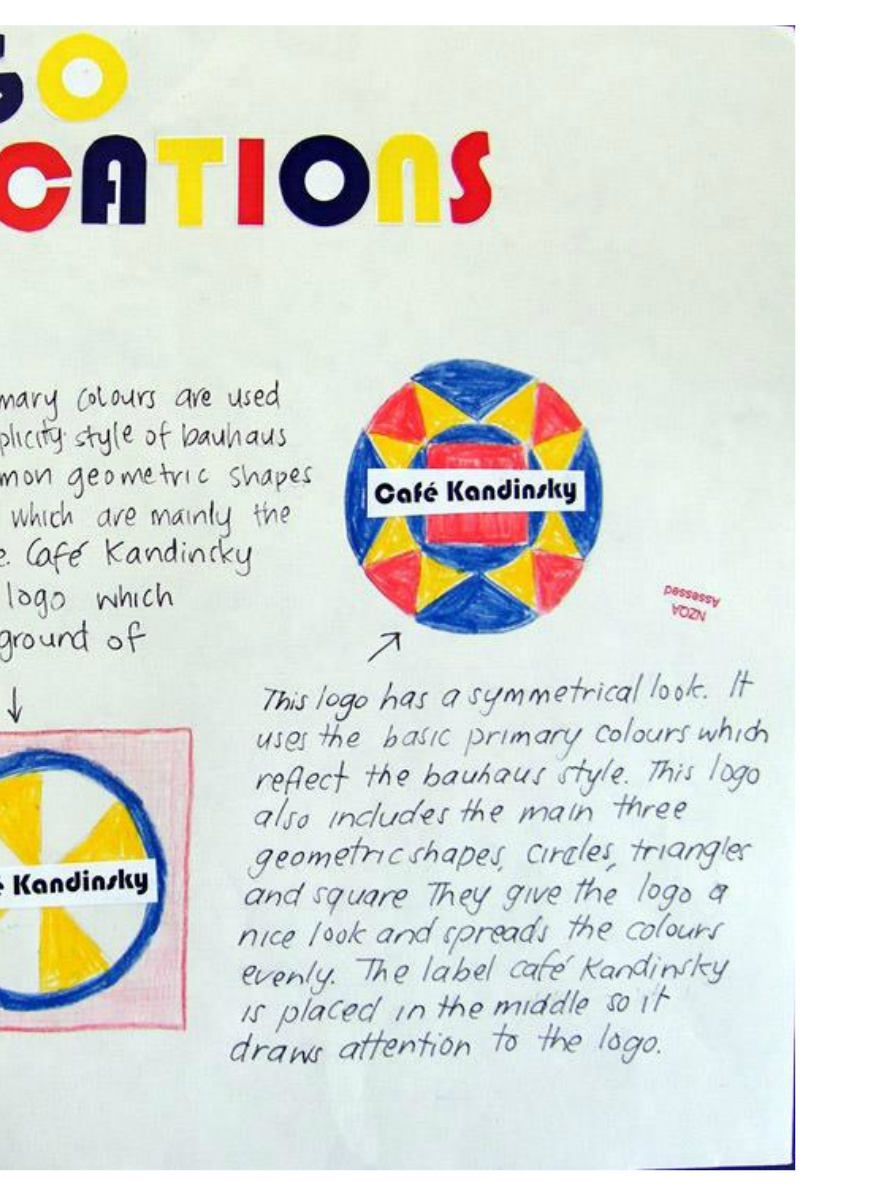 GO
CATIONS
mary colours are used
plicity style of bauhaus
mon geometric shapes
which are mainly the
e. Café Kandinsky
logo which
ground of
Café Kandinsky
NZQA
Assessed
This logo has a symmetrical look. It
uses the basic primary colours which
reflect the bauhaus style. This logo
also includes the main three
geometric shapes, circles, triangles
and square They give the logo a
nice look and spreads the colours
evenly. The label café Kandinsky
is placed in the middle so it
draws attention to the logo.
é Kandinsky